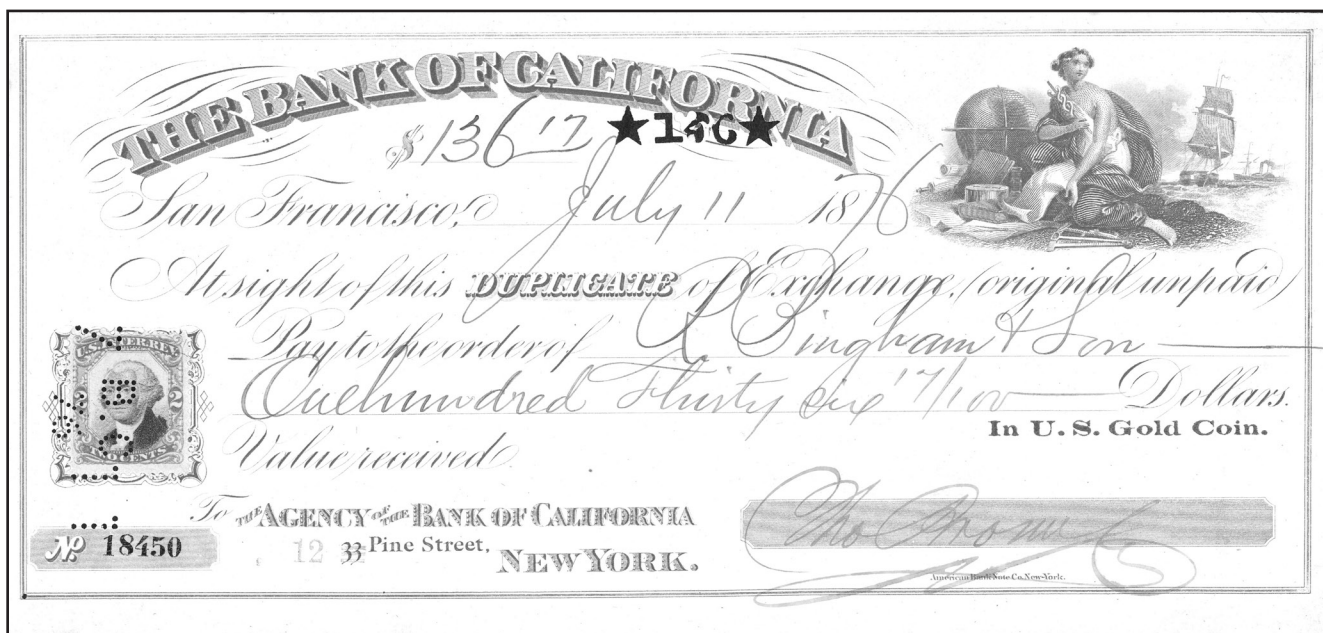 THE BANK OF CALIFORNIA
$ 136 17 ★146★
San Francisco, July 11 1876
At sight of this DUPLICATE of Exchange, (original unpaid)
Pay to the order of R Bingham & Son
One hundred Thirty six 17/100 Dollars.
In U.S. Gold Coin.
Value received
U.S. INTER. REV.
2 2
TWO CENTS
To THE AGENCY OF THE BANK OF CALIFORNIA
12 33 Pine Street, NEW YORK.
No. 18450
Tho Brown
American Bank Note Co. New-York.